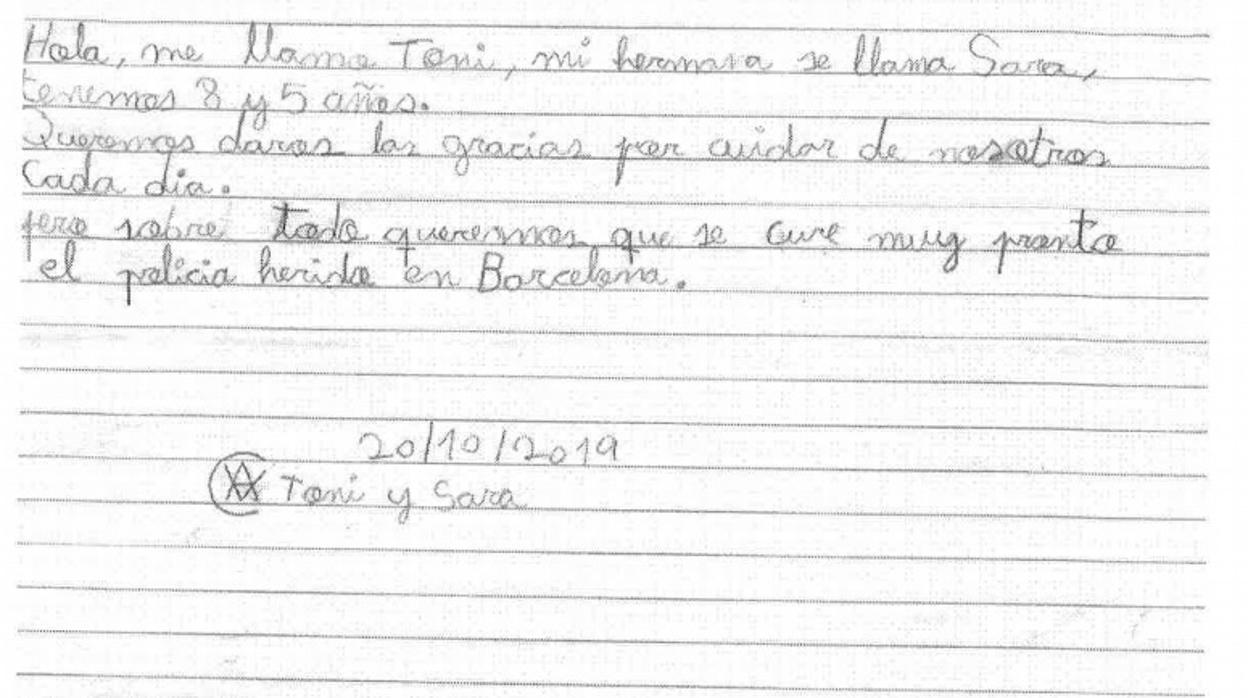 Hola, me llamo Toni, mi hermana se llama Sara,
tenemos 8 y 5 años.
Queremos daros las gracias por cuidar de nosotros
Cada dia.
pero sobre todo queremos que se cure muy pronto
el policia herido en Barcelona.
20/10/2019
Toni y Sara